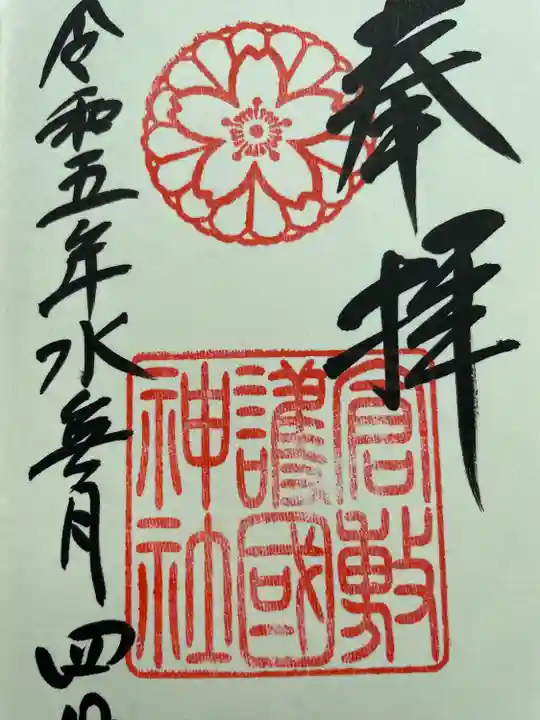 奉拝
倉敷
護國
神社
令和五年水無月四日